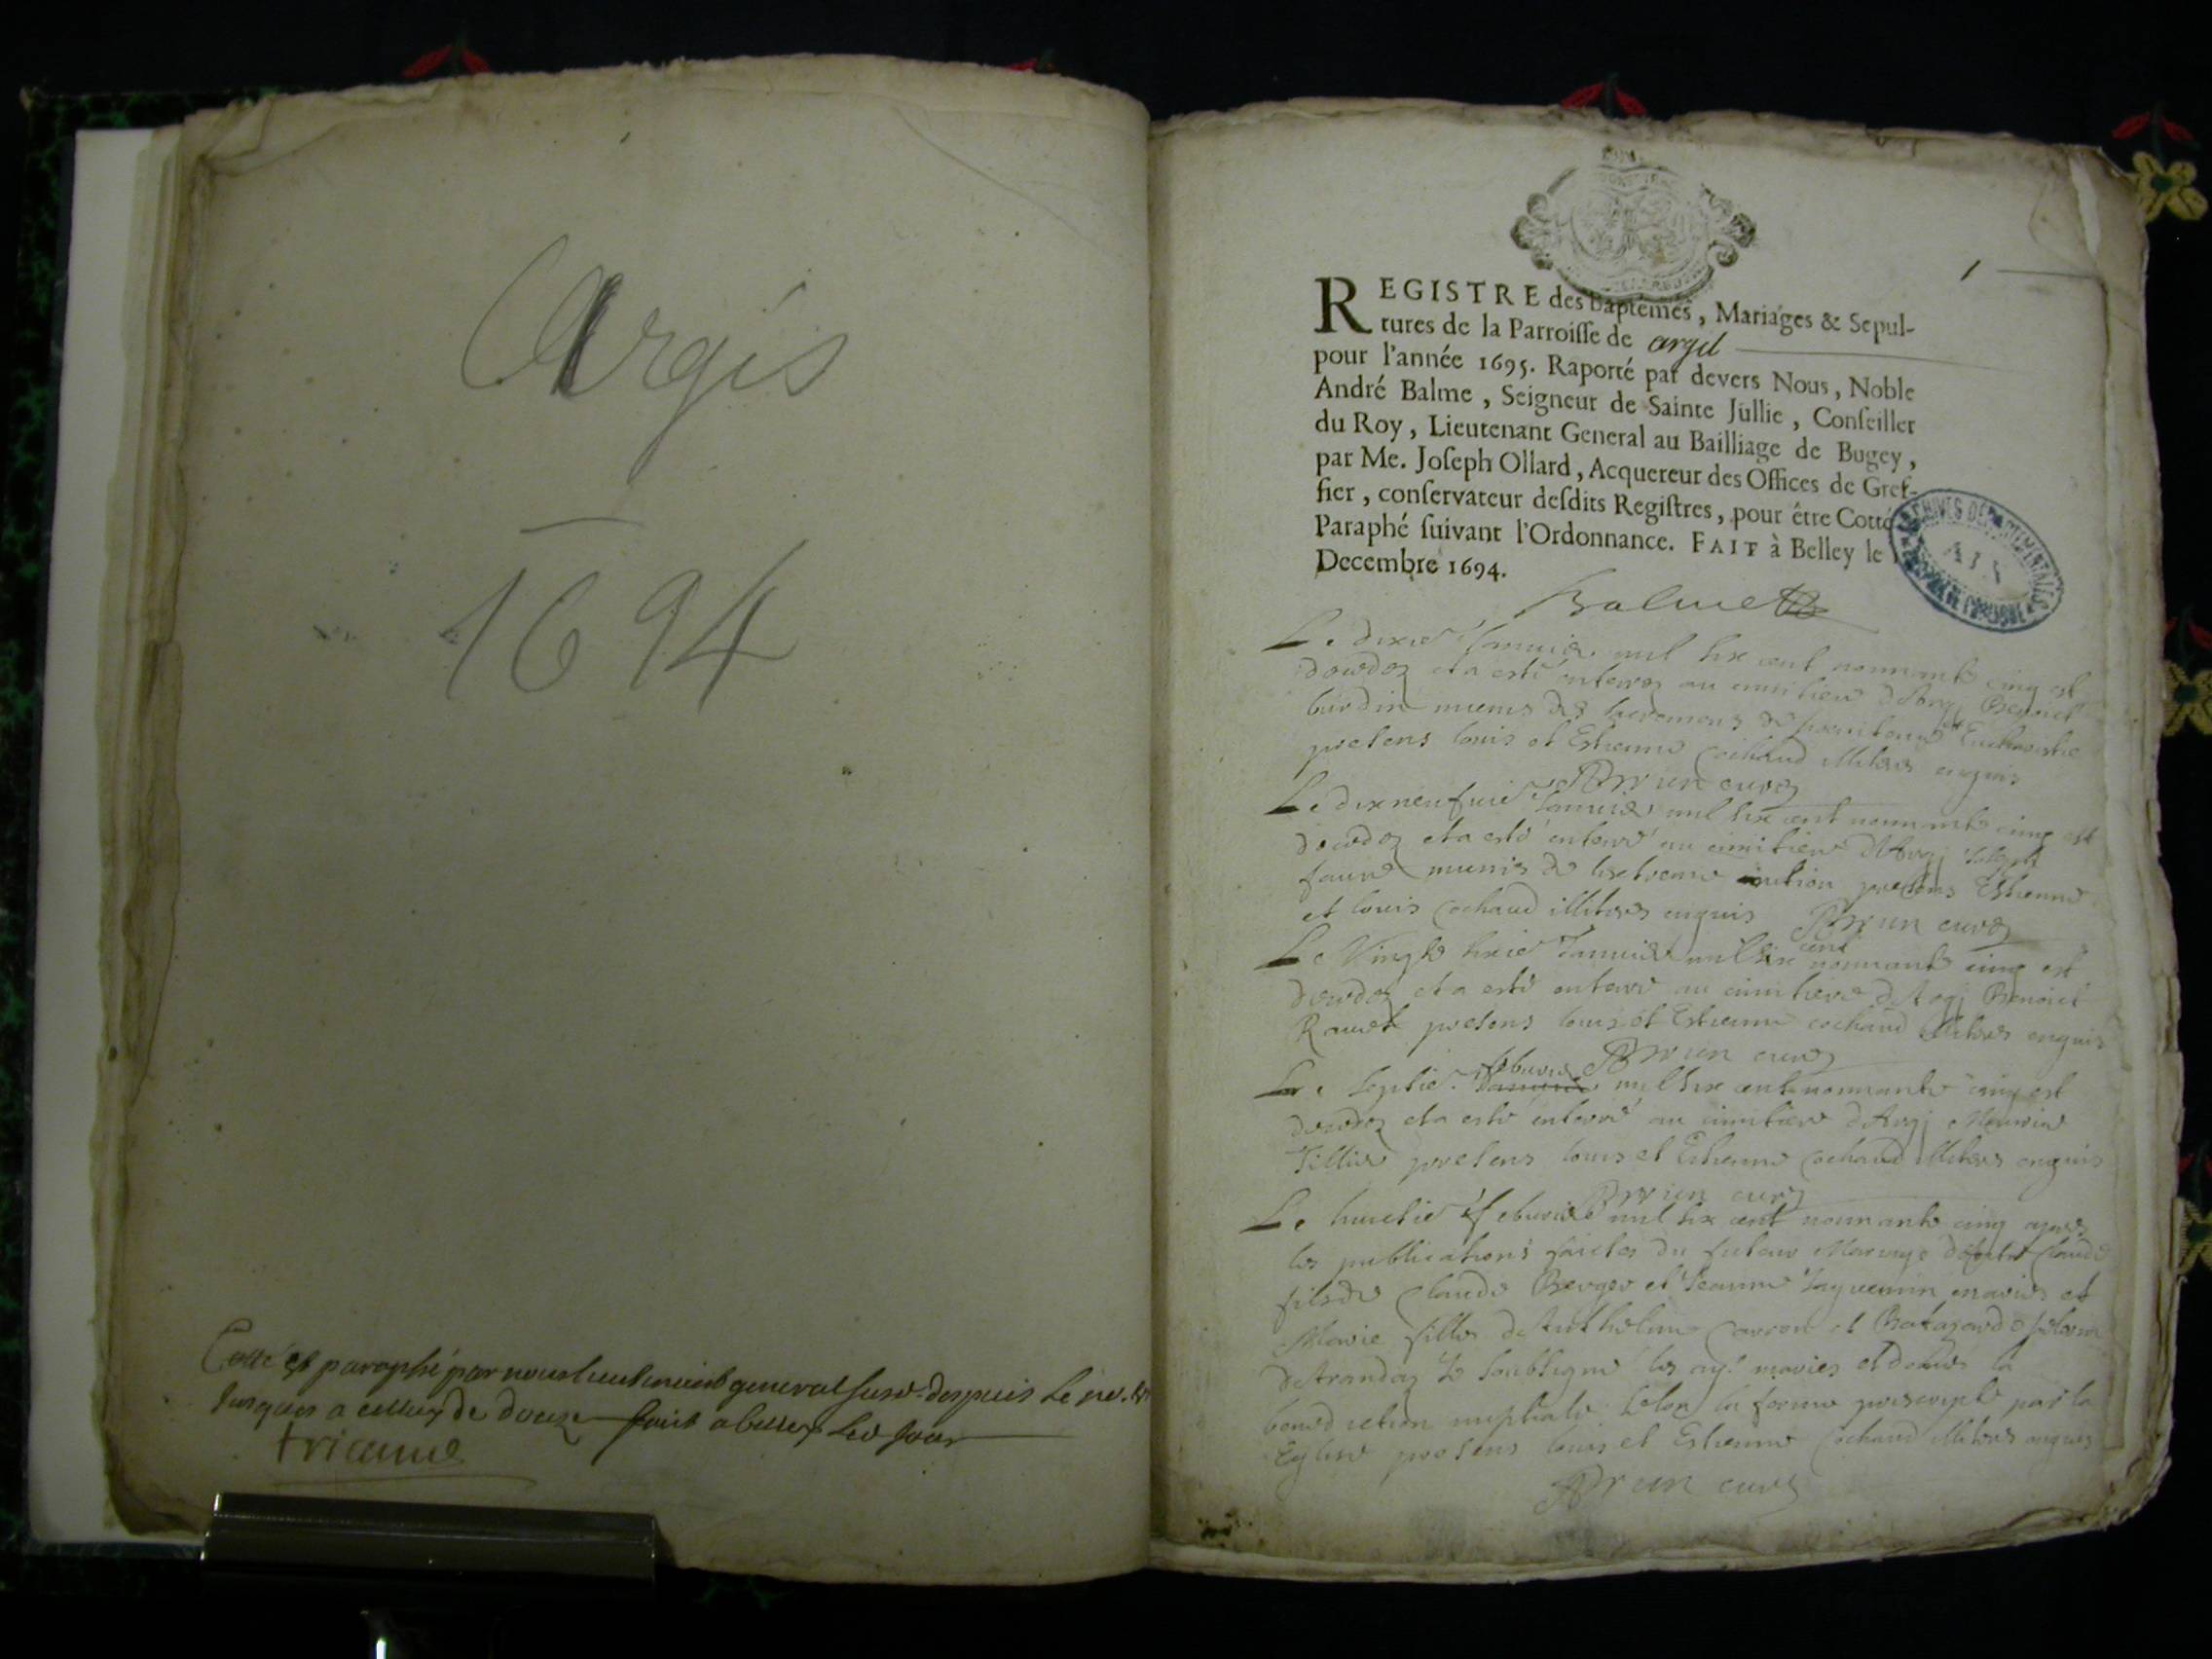 Argis
1694
Cotté et paraphé par nous lieutenant general susd. despuis le pr. f.
jusques a celluy de douze fait a belley led jour
tricaud
1
REGISTRE des Baptémes, Mariáges & Sepul-
tures de la Parroisse de argil
pour l'année 1695. Raporté par devers Nous, Noble
André Balme, Seigneur de Sainte Jullie, Conseiller
du Roy, Lieutenant General au Bailliage de Bugey,
par Me. Joseph Ollard, Acquereur des Offices de Gref-
fier, conservateur desdits Registres, pour être Cotté
Paraphé suivant l'Ordonnance. FAIT à Belley le
Decembre 1694.
ARCHIVES DEPARTEMENTALES
Balme
Le dixie Januier mil six cent nonnante cinq est
decedez et a esté enterrez au cimitiere d'Argj Benoict
burdin munis des sacremens de penitence et Eucharistie
presens louis et Estienne cochand illiteres enquis
Brun curez
Le dixneufuie Januier mil six cent nonnante cinq est
decedez et a esté enterré au cimitiere d'Argj
faure munis de lextreme onction presens Estienne
et louis cochand illiteres enquis Brun curez
Le Vingt sixie Januier mil six cent nonnante cinq est
decedez et a esté enterré au cimitiere d'Argj Benoict
Rauet presens louis et Estienne cochand illiteres enquis
Brun curez
Le septie feburier mil six cent nonnante cinq est
decedez et a esté enterré au cimitiere d'Argj
Tillier presens louis et Estienne cochand illiteres enquis
Brun curez
Le huictie feburier mil six cent nonnante cinq apres
les publications faictes du futeur Mariage d'entre Claude
fils de Claude Berger et Jeanne Jaquemin mariés et
Marie fille d'Anthelme Carron et
d'Arandaz Je soubsigné les ay mariés et donné la
benediction nuptiale selon la forme prescripte par la
Eglise presens louis et Estienne cochand illiteres enquis
Brun curez